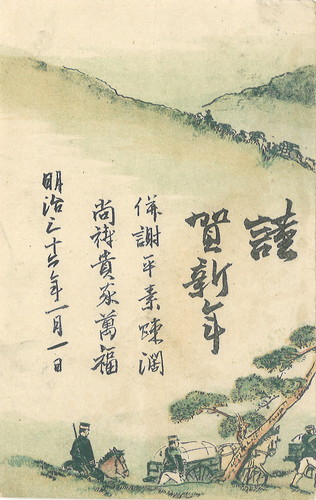 謹
賀新年
併謝平素疎濶
尚祷貴家萬福
明治三十六年一月一日